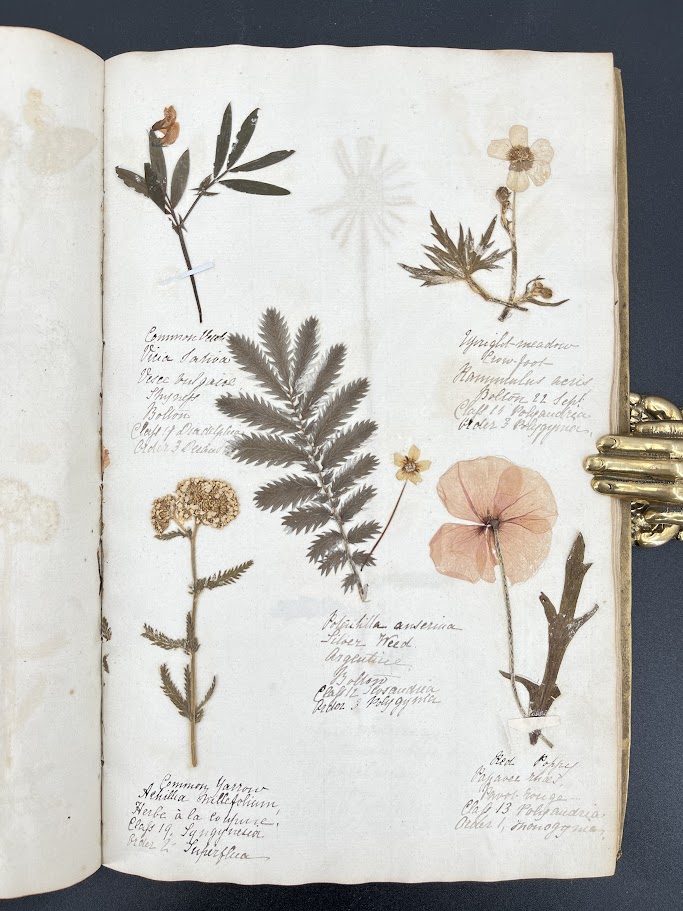 Common Vetch
Vicia Sativa
Vesce
Bolton
Order 3
Upright meadow
Crow-foot
acris
Bolton 22 Sept
Class 13 Polyandria
Order 3 Polygymia,
Potentilla anserina
Silver Weed.
Argentine,
Bolton
Class 12 Icosandria
Order 3 Polygymia
Common Yarrow
Achillia Millefolium,
Herbe à la coupure,
Class 19, Syngynesia
Order 2 Superflua
Red Poppy
Papaver
rouge
Class 13 Polyandria,
Order 1, monogymia,